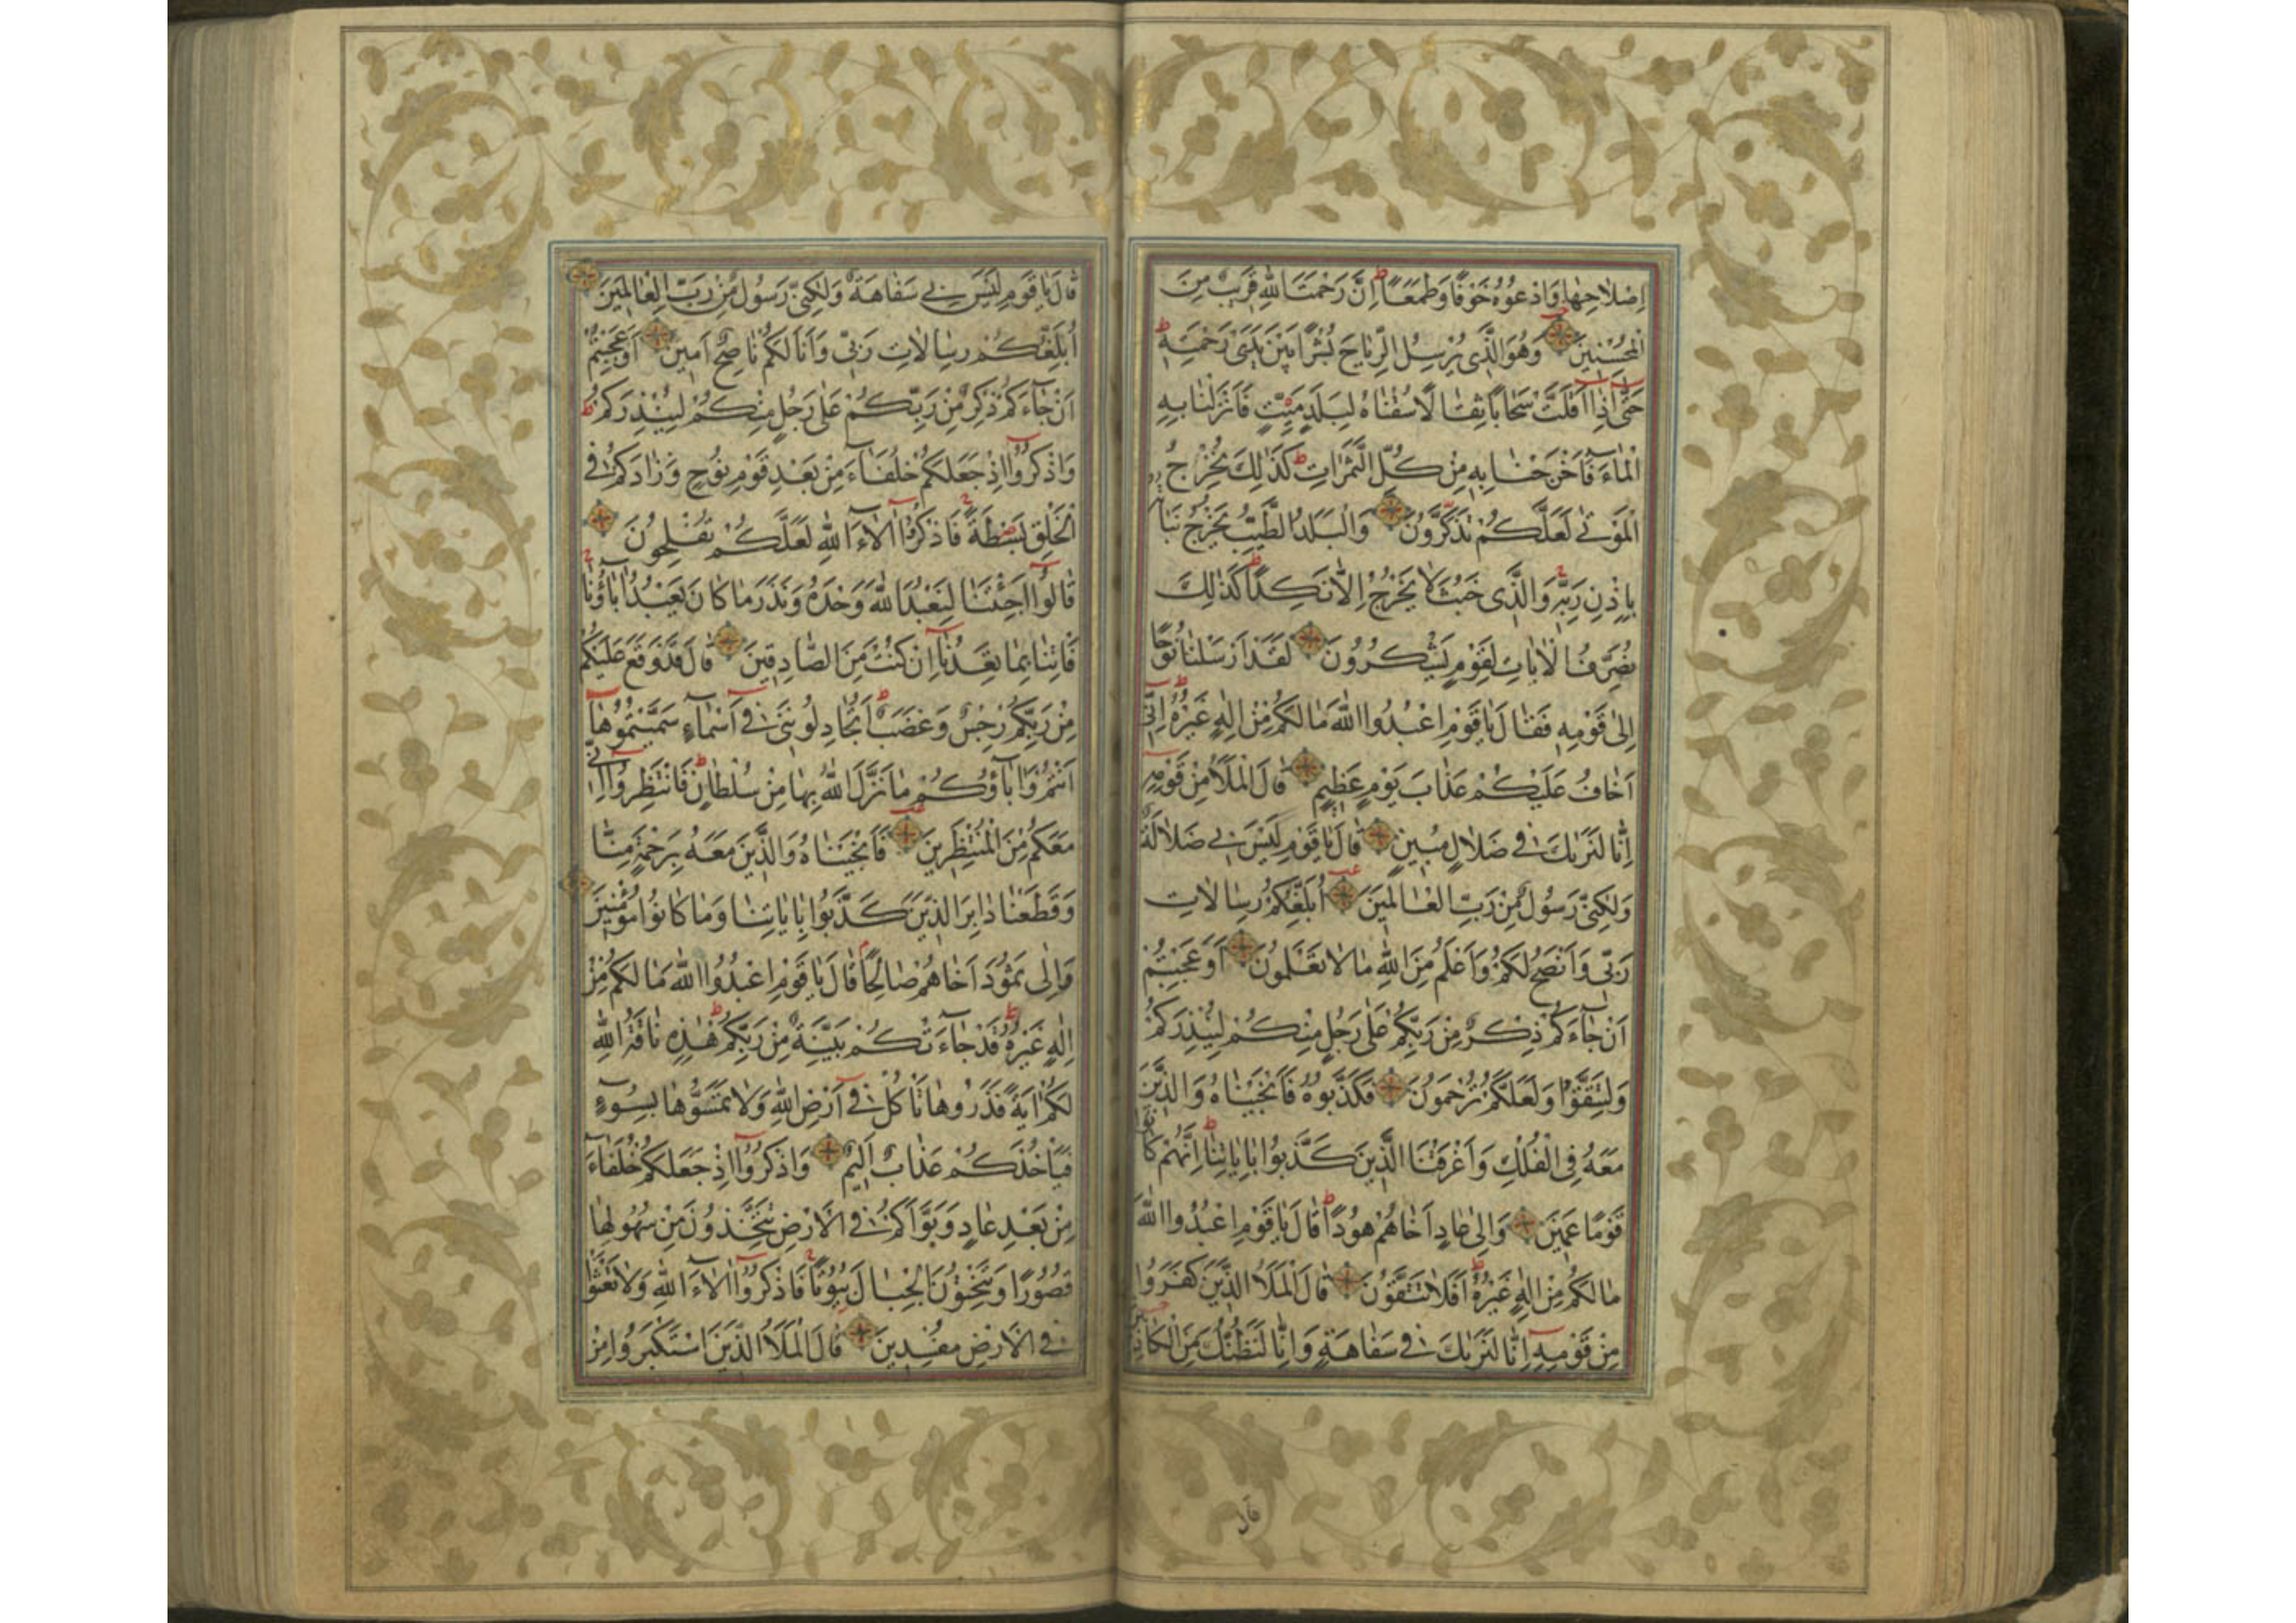 اِصْلَاحِهَا وَادْعُوهُ خَوْفًا وَطَمَعًا ط اِنَّ رَحْمَتَ اللّٰهِ قَرِيبٌ مِنَ
الْمُحْسِنِينَ وَهُوَ الَّذِي يُرْسِلُ الرِّيَاحَ بُشْرًا بَيْنَ يَدَيْ رَحْمَتِهِ ط
حَتّٰى اِذَا اَقَلَّتْ سَحَابًا ثِقَالًا سُقْنَاهُ لِبَلَدٍ مَيِّتٍ فَاَنْزَلْنَا بِهِ
الْمَاءَ فَاَخْرَجْنَا بِهِ مِنْ كُلِّ الثَّمَرَاتِ ط كَذٰلِكَ نُخْرِجُ
الْمَوْتٰى لَعَلَّكُمْ تَذَكَّرُونَ وَالْبَلَدُ الطَّيِّبُ يَخْرُجُ نَبَاتُهُ
بِاِذْنِ رَبِّهِ ج وَالَّذِي خَبُثَ لَا يَخْرُجُ اِلَّا نَكِدًا ط كَذٰلِكَ
نُصَرِّفُ الْاٰيَاتِ لِقَوْمٍ يَشْكُرُونَ لَقَدْ اَرْسَلْنَا نُوحًا
اِلٰى قَوْمِهِ فَقَالَ يَا قَوْمِ اعْبُدُوا اللّٰهَ مَا لَكُمْ مِنْ اِلٰهٍ غَيْرُهُ ط اِنِّي
اَخَافُ عَلَيْكُمْ عَذَابَ يَوْمٍ عَظِيمٍ قَالَ الْمَلَاُ مِنْ قَوْمِهِ
اِنَّا لَنَرٰيكَ فِي ضَلَالٍ مُبِينٍ قَالَ يَا قَوْمِ لَيْسَ بِي ضَلَالَةٌ
وَلٰكِنِّي رَسُولٌ مِنْ رَبِّ الْعَالَمِينَ اُبَلِّغُكُمْ رِسَالَاتِ
رَبِّي وَاَنْصَحُ لَكُمْ وَاَعْلَمُ مِنَ اللّٰهِ مَا لَا تَعْلَمُونَ اَوَعَجِبْتُمْ
اَنْ جَاءَكُمْ ذِكْرٌ مِنْ رَبِّكُمْ عَلٰى رَجُلٍ مِنْكُمْ لِيُنْذِرَكُمْ
وَلِتَتَّقُوا وَلَعَلَّكُمْ تُرْحَمُونَ فَكَذَّبُوهُ فَاَنْجَيْنَاهُ وَالَّذِينَ
مَعَهُ فِي الْفُلْكِ وَاَغْرَقْنَا الَّذِينَ كَذَّبُوا بِاٰيَاتِنَا ط اِنَّهُمْ كَانُوا
قَوْمًا عَمِينَ وَاِلٰى عَادٍ اَخَاهُمْ هُودًا ط قَالَ يَا قَوْمِ اعْبُدُوا اللّٰهَ
مَا لَكُمْ مِنْ اِلٰهٍ غَيْرُهُ ط اَفَلَا تَتَّقُونَ قَالَ الْمَلَاُ الَّذِينَ كَفَرُوا
مِنْ قَوْمِهِ اِنَّا لَنَرٰيكَ فِي سَفَاهَةٍ وَاِنَّا لَنَظُنُّكَ مِنَ الْكَاذِبِينَ
قال
قَالَ يَا قَوْمِ لَيْسَ بِي سَفَاهَةٌ وَلٰكِنِّي رَسُولٌ مِنْ رَبِّ الْعَالَمِينَ
اُبَلِّغُكُمْ رِسَالَاتِ رَبِّي وَاَنَا لَكُمْ نَاصِحٌ اَمِينٌ اَوَعَجِبْتُمْ
اَنْ جَاءَكُمْ ذِكْرٌ مِنْ رَبِّكُمْ عَلٰى رَجُلٍ مِنْكُمْ لِيُنْذِرَكُمْ ط
وَاذْكُرُوا اِذْ جَعَلَكُمْ خُلَفَاءَ مِنْ بَعْدِ قَوْمِ نُوحٍ وَزَادَكُمْ فِي
الْخَلْقِ بَصْطَةً ج فَاذْكُرُوا اٰلَاءَ اللّٰهِ لَعَلَّكُمْ تُفْلِحُونَ
قَالُوا اَجِئْتَنَا لِنَعْبُدَ اللّٰهَ وَحْدَهُ وَنَذَرَ مَا كَانَ يَعْبُدُ اٰبَاؤُنَا ج
فَاْتِنَا بِمَا تَعِدُنَا اِنْ كُنْتَ مِنَ الصَّادِقِينَ قَالَ قَدْ وَقَعَ عَلَيْكُمْ
مِنْ رَبِّكُمْ رِجْسٌ وَغَضَبٌ ط اَتُجَادِلُونَنِي فِي اَسْمَاءٍ سَمَّيْتُمُوهَا
اَنْتُمْ وَاٰبَاؤُكُمْ مَا نَزَّلَ اللّٰهُ بِهَا مِنْ سُلْطَانٍ ط فَانْتَظِرُوا اِنِّي
مَعَكُمْ مِنَ الْمُنْتَظِرِينَ فَاَنْجَيْنَاهُ وَالَّذِينَ مَعَهُ بِرَحْمَةٍ مِنَّا
وَقَطَعْنَا دَابِرَ الَّذِينَ كَذَّبُوا بِاٰيَاتِنَا وَمَا كَانُوا مُؤْمِنِينَ
وَاِلٰى ثَمُودَ اَخَاهُمْ صَالِحًا م قَالَ يَا قَوْمِ اعْبُدُوا اللّٰهَ مَا لَكُمْ مِنْ
اِلٰهٍ غَيْرُهُ ط قَدْ جَاءَتْكُمْ بَيِّنَةٌ مِنْ رَبِّكُمْ ط هٰذِهِ نَاقَةُ اللّٰهِ
لَكُمْ اٰيَةً فَذَرُوهَا تَاْكُلْ فِي اَرْضِ اللّٰهِ وَلَا تَمَسُّوهَا بِسُوءٍ
فَيَاْخُذَكُمْ عَذَابٌ اَلِيمٌ وَاذْكُرُوا اِذْ جَعَلَكُمْ خُلَفَاءَ
مِنْ بَعْدِ عَادٍ وَبَوَّاَكُمْ فِي الْاَرْضِ تَتَّخِذُونَ مِنْ سُهُولِهَا
قُصُورًا وَتَنْحِتُونَ الْجِبَالَ بُيُوتًا ج فَاذْكُرُوا اٰلَاءَ اللّٰهِ وَلَا تَعْثَوْا
فِي الْاَرْضِ مُفْسِدِينَ قَالَ الْمَلَاُ الَّذِينَ اسْتَكْبَرُوا مِنْ